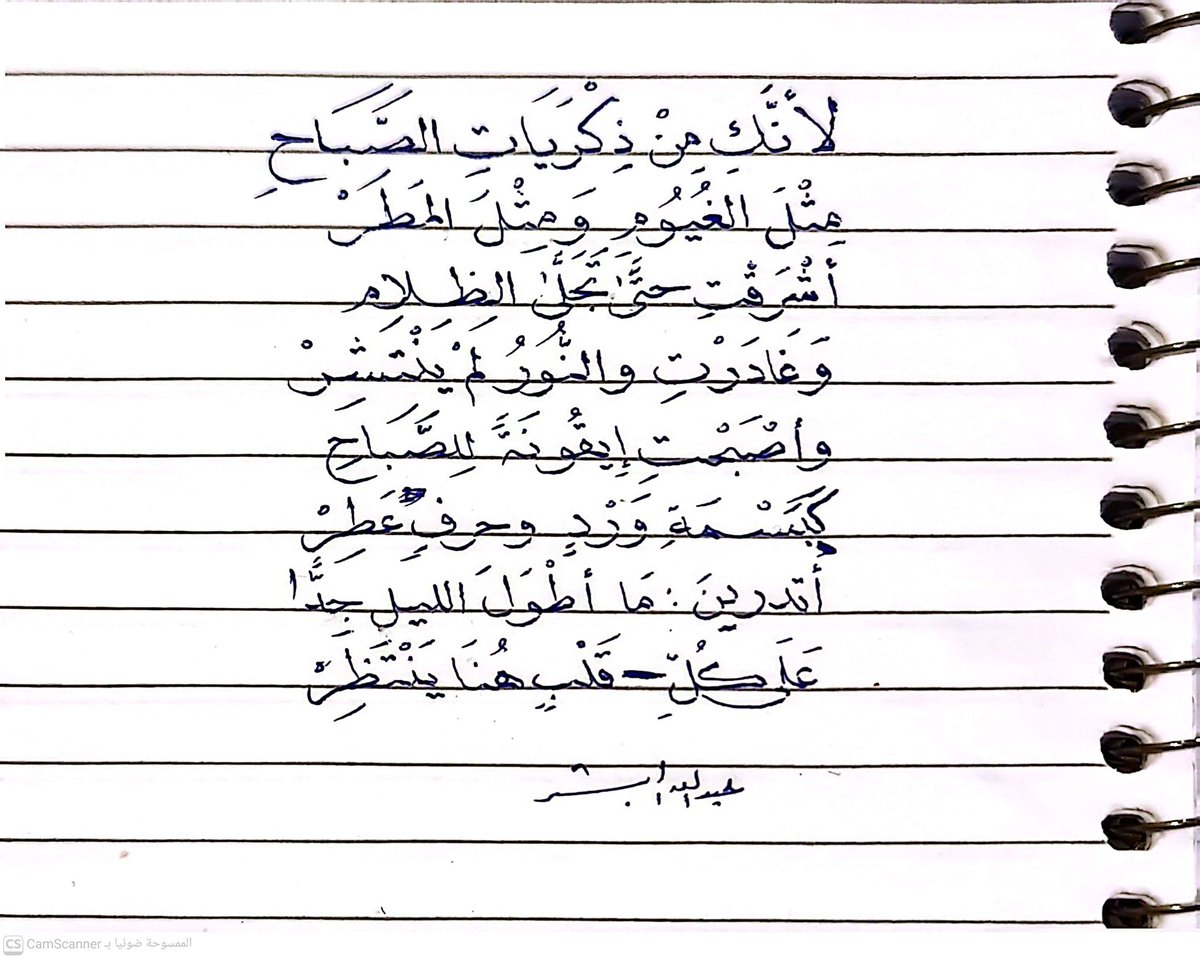 لأَنَّكِ مِنْ ذِكْرَيَاتِ الصَّبَاحِ
مِثْلَ الغُيُومِ وَمِثْلَ المَطَرْ
أشْرَقْتِ حتَّىٰ تَجَلَّىٰ الظلام
وَغَادَرْتِ والنُّورُ لَمْ يَنْتَشِرْ
وأصْبَحْتِ إيقُونَةً لِلصَّبَاحِ
كَبَسْمَةِ وَرْدٍ وحرفٍ عَطِرْ
أتدرينَ : مَا أطْوَلَ الليل جِدًّا
عَلَى كُلِّ قَلْبٍ هُنَا يَنْتَظِرْ
عبدالله
CS CamScanner الممسوحة ضوئيا بـ